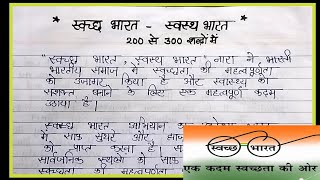 स्वच्छ भारत - स्वस्थ भारत
200 से 300 शब्दों में
"स्वच्छ भारत, स्वस्थ भारत, नारा ने भारती
भारतीय समाज में स्वच्छता की महत्वपूर्णता
को उजागर किया है और स्वास्थ्य को
सशक्त बनाने के लिए एक महत्वपूर्ण कदम
उठाया है।
स्वच्छ भारत अभियान का
में साफ सुथरे और
को प्राप्त करना है।
सार्वजनिक स्थलों को साफ
स्वच्छता की महत्वपूर्ण
स्वच्छ भारत
एक कदम स्वच्छता की ओर